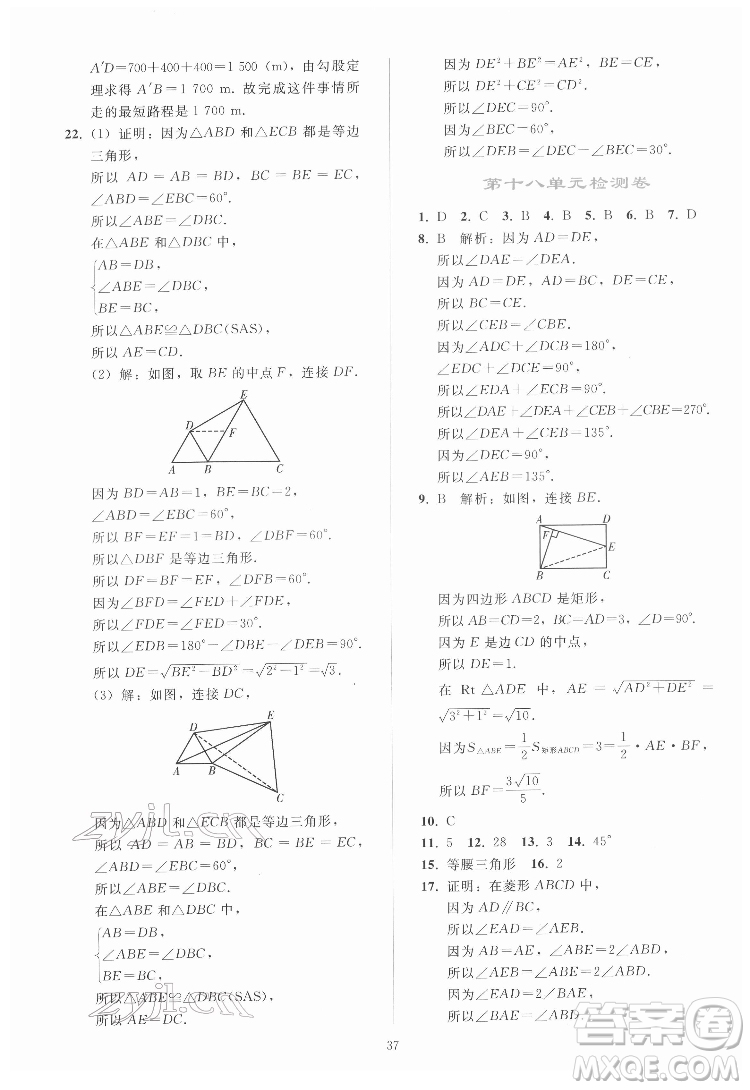 A′D=700+400+400=1 500 (m)，由勾股定
理求得 A′B=1 700 m. 故完成这件事情所
走的最短路程是 1 700 m.
22. (1) 证明：因为△ABD 和△ECB 都是等边
三角形，
所以 AD=AB=BD，BE=BC=EC，
∠ABD=∠EBC=60°.
所以∠ABE=∠DBC.
在△ABE 和△DBC 中，
AB=DB，
∠ABE=∠DBC，
BE=BC，
所以△ABE≌△DBC(SAS).
所以 AE=CD.
(2) 解：如图，取 BE 的中点 F，连接 DF.
E
D F
A B C
因为 BD=AB=1，BE=BC=2，
∠ABD=∠EBC=60°，
所以 BF=EF=1=BD，∠DBF=60°.
所以△DBF 是等边三角形.
所以 DF=BF=EF，∠DFB=60°.
因为∠BFD=∠FED+∠FDE，
所以∠FDE=∠FED=30°.
所以∠EDB=180°-∠DBE-∠BED=90°.
所以 DE=√(BE²-BD²)=√(2²-1²)=√3.
(3) 解：如图，连接 DC，
D E
A B
C
因为△ABD 和△ECB 都是等边三角形，
所以 AD=AB=BD，BE=BC=EC，
∠ABD=∠EBC=60°，
所以∠ABE=∠DBC.
在△ABE 和△DBC 中，
AB=DB，
∠ABE=∠DBC，
BE=BC，
所以△ABE≌△DBC(SAS)，
所以 AE=DC.
因为 DE²+BE²=AE²，BE=CE，
所以 DE²+CE²=CD².
所以∠DEC=90°.
因为∠BEC=60°，
所以∠DEB=∠DEC-∠BEC=30°.
第十八单元检测卷
1. D 2. C 3. B 4. B 5. B 6. B 7. D
8. B 解析：因为 AD=DE，
所以∠DAE=∠DEA.
因为 AD=DE，AD=BC，DE=EC，
所以 BC=CE.
所以∠CEB=∠CBE.
因为∠ADC+∠DCB=180°，
∠EDC+∠ECD=90°，
所以∠EDA+∠ECB=90°.
所以∠DAE+∠DEA+∠CEB+∠CBE=270°.
所以∠DEA+∠CEB=135°.
因为∠DEC=90°，
所以∠AEB=135°.
9. B 解析：如图，连接 BE.
A D
F
E
B C
因为四边形 ABCD 是矩形，
所以 AB=CD=2，BC=AD=3，∠D=90°.
因为 E 是边 CD 的中点，
所以 DE=1.
在 Rt △ADE 中，AE=√(AD²+DE²)=
√(3²+1²)=√10.
因为S△ABE=1/2 S矩形ABCD=3=1/2·AE·BF，
所以 BF=3√10/5.
10. C
11. 5 12. 28 13. 3 14. 45°
15. 等腰三角形 16. 2
17. 证明：在菱形 ABCD 中，
因为 AD∥BC，
所以∠EAD=∠AEB.
因为 AE=AB，
所以∠ABE=∠AEB.
所以∠ABE=∠EAD.
因为∠EAD=2∠BAE，
所以∠AEB=∠ABE=2∠BAE，
37
zyjl.cn
zyjl.cn
答案卷
MXQE.COM